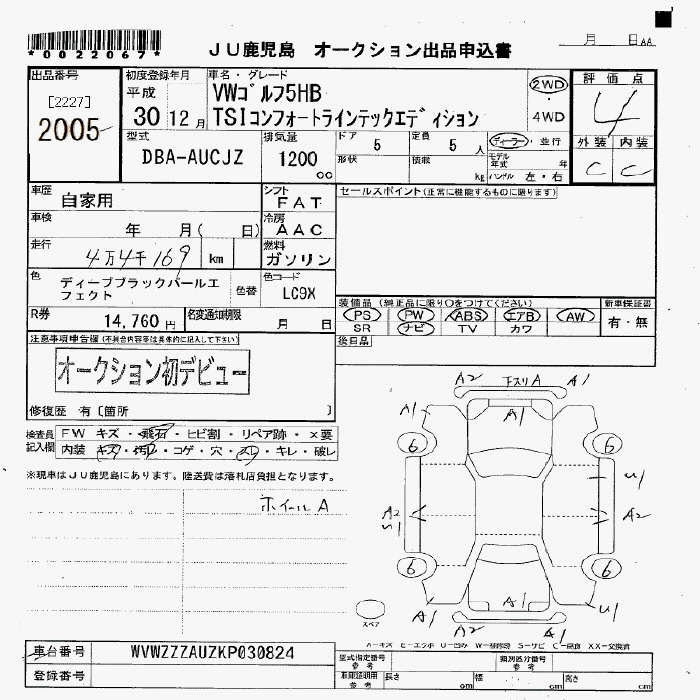 *0022067*
JU鹿児島 オークション出品申込書
月 日 AA
出品番号
[2227]
2005
初度登録年月
平成
30 12月
車名・グレード
VWゴルフ5HB
TSIコンフォートラインテックエディション
2WD
・
4WD
評価点
4
外装 内装
C C
型式
DBA-AUCJZ
排気量
1200
cc
ドア
5
定員
5 人
ディーラー・並行
形状
積載
kg
モデル年式 年
ハンドル 左・右
車歴
自家用
シフト
FAT
セールスポイント(正常に機能するものに限ります)
車検
年 月( 日)
冷房
AAC
走行
4万4千169 km
燃料
ガソリン
色
ディープブラックパールエフェクト
色替
色コード
LC9X
R券
14,760 円
名変通知期限
月 日
装備品(純正品に限り○をつけてください)
PS PW ABS エアB AW
SR ナビ TV カワ
新車保証書
有・無
後日品
注意事項申告欄(不具合内容等は具体的に記入して下さい)
オークション初デビュー
修復歴 有〔箇所 〕
検査員記入欄
FW キズ・飛石・ヒビ割・リペア跡・×要
内装 キズ・汚レ・コゲ・穴・スレ・キレ・破レ
※現車はJU鹿児島にあります。陸送費は落札店負担となります。
ホイールA
A2 下スリA A1
A1 A1
6 6
U1
A2
U1
A2
6 6
A1 A1 U1
A2 A1
スペア
A－キズ E－エクボ U－凹み W－補修跡 S－サビ C－腐食 XX－交換済
車台番号
WVWZZZAUZKP030824
登録番号
型式指定番号
参考
類別区分番号
参考
車庫証明用
参考
長さ cm
幅 cm
高さ cm